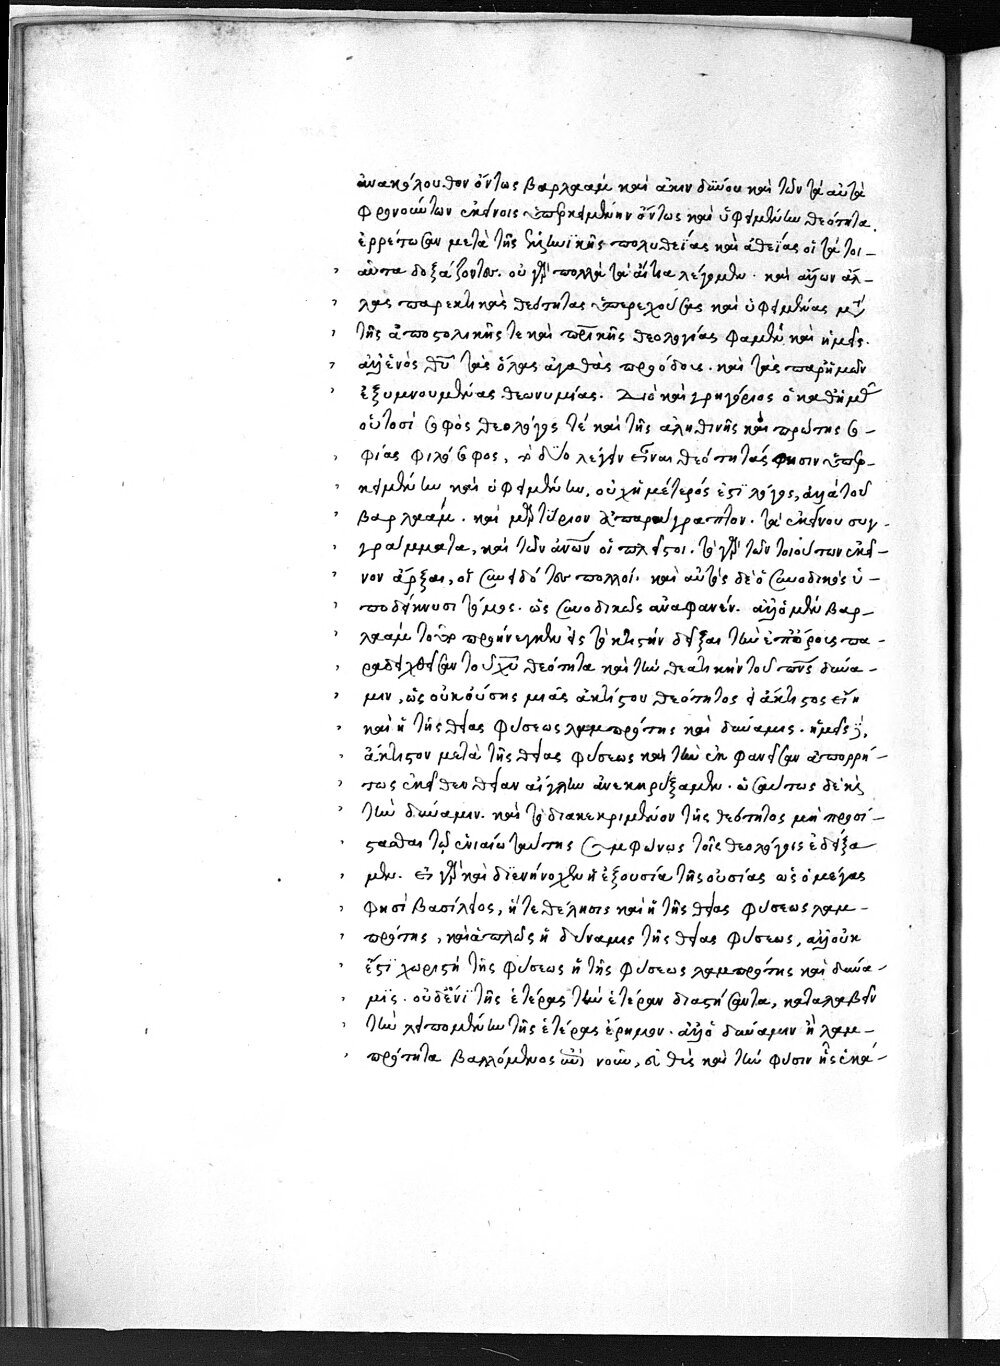 ἀνακόλουθον ὄντως βαρλαὰμ καὶ ἀκινδύνου καὶ τῶν τὰ αὐτὰ
φρονούντων ἐκείνοις ὑπερκειμένην ὄντως καὶ ὑφειμένην θεότητα
ἐρρέτωσαν μετὰ τῆς πολυθεΐας καὶ ἀθεΐας οἱ τὰ τοι-
αῦτα δοξάζοντες. οὐ γὰρ πολλὰ τὰ αἴτια λέγομεν. καὶ ἄλλων ἄλ-
λας παρεκτικὰς θεότητας ὑπερεχούσας καὶ ὑφειμένας μετὰ
τῆς ἀποστολικῆς τε καὶ πρικῆς θεολογίας φαμὲν καὶ ἡμεῖς.
ἀλλ' ἑνὸς θυ τὰς ὅλας ἀγαθὰς προόδους. καὶ τὰς παρ' ἡμῶν
ἐξυμνουμένας θεωνυμίας. Διὸ καὶ γρηγόριος ὁ καθ' ἡμᾶς
οὑτοσὶ σοφὸς θεολόγος τὲ καὶ τῆς ἀληθινῆς καὶ πρώτης σο-
φίας φιλόσοφος, τὸ δύο λέγειν εἶναι θεότητάς φησιν ὑπερ-
κειμένην καὶ ὑφειμένην, οὐχ ἡμέτερός ἐστι λόγος, ἀλλὰ τοῦ
βαρλαάμ. καὶ μαρτύριον ἀπαράγραπτον. τὰ ἐκείνου συγ-
γράμματα, καὶ τῶν ἀνῶν οἱ πλεῖστοι. τὸ γὰρ τῶν τοιούτων ἐκεῖ-
νον ἄρξαι, οἱ συνειδότες πολλοί. καὶ αὐτὸς δὲ ὁ συνοδικὸς ὑ-
ποδείκνυσι τόμος. ὡς συνοδικῶς ἀναφανέν. ἀλλ' ὁ μὲν βαρ-
λαὰμ προήνεγκεν εἰς τὸ κτιστὴν δεῖξαι τὴν ἐπ' ὄρους πα-
ραδειχθεῖσαν τοῦ χυ θεότητα καὶ τὴν θεατικὴν τοῦ πνς δύνα-
μιν, ὡς οὐκ οὔσης μιᾶς ἀκτίστου θεότητος εἰ ἄκτιστος εἴη
καὶ ἡ τῆς θείας φύσεως λαμπρότης καὶ δύναμις. ἡμεῖς δὲ,
ἄκτιστον μετὰ τῆς θείας φύσεως καὶ τὴν ἐκφανεῖσαν ἀπορρή-
τως ἐκεῖθεν θείαν αἴγλην ἀνεκηρύξαμεν. ὡσαύτως δὲ καὶ
τὴν δύναμιν. καὶ τὸ διακεκριμένον τῆς θεότητος μὴ προσί-
στασθαι τῷ ἑνιαίῳ ταύτης συμφώνως τοῖς θεολόγοις ἐδείξα-
μεν. εἰ γὰρ καὶ διενήνοχεν ἡ ἐξουσία τῆς οὐσίας ὡς ὁ μέγας
φησὶ βασίλειος, ἥ τε θέλησις καὶ ἡ τῆς θείας φύσεως λαμ-
πρότης, καὶ ἁπλῶς ἡ δύναμις τῆς θείας φύσεως, ἀλλ' οὐκ
ἔστι χωριστὴ τῆς φύσεως ἡ τῆς φύσεως λαμπρότης καὶ δύνα-
μις. οὐδ' ἔνι τῆς ἑτέρας τὴν ἑτέραν διαστήσαντα, καταλαβεῖν
τὴν λειπομένην τῆς ἑτέρας ἔρημον. ἀλλ' ὁ δύναμιν ἢ λαμ-
πρότητα βαλλόμενος ἐπὶ νοῦν, εὐθὺς καὶ τὴν φύσιν ἧς ἑκά-